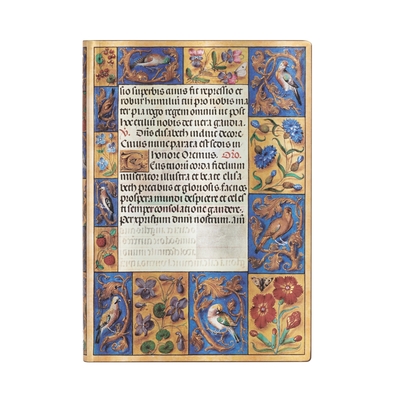 sio superbis cinis fit repressio et
robur humilium cui pro nobis ma
ter pia rogo regem omnium ut post
hoc exilium nobis det vera gaudia.
V. Dñs elisabeth induit decore
Cuius nunc parata est sedis in
honore Oremus. Oro.
corda fidelium
miserator illustra et beate elisa
beth precibus et gloriosis fac nos
prospera mundi despicere et celes
ti semper consolatione gaudere.
Per xpistum dnm nostrum. Am